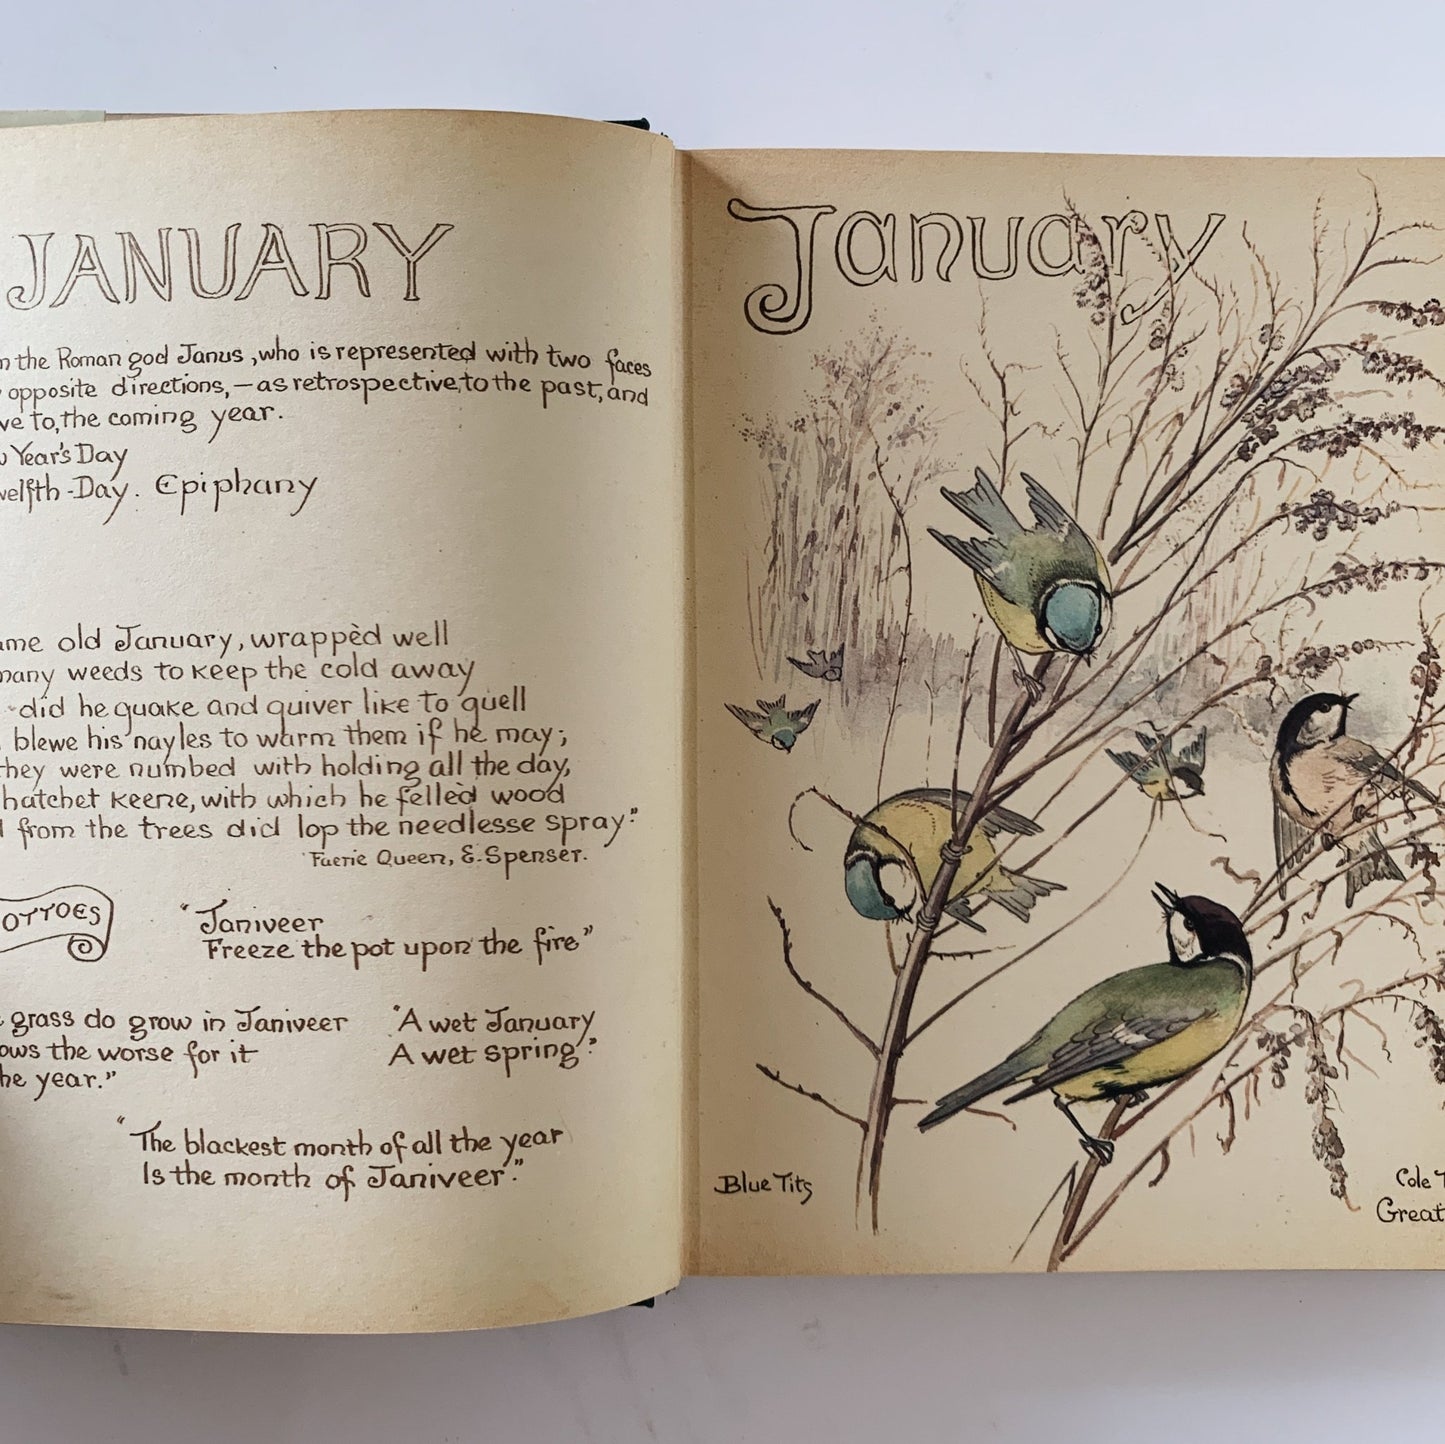 JANUARY
the Roman god Janus, who is represented with two faces
opposite directions, — as retrospective, to the past, and
to, the coming year.
Year's Day
Day. Epiphany
old January, wrappèd well
weeds to keep the cold away
did he quake and quiver like to quell
blewe his nayles to warm them if he may;
they were numbed with holding all the day,
hatchet keene, with which he felled wood
from the trees did lop the needlesse spray."
Faerie Queen, E. Spenser.
"Janiveer
Freeze the pot upon the fire"
grass do grow in Janiveer
the worse for it
year."
"A wet January
A wet spring."
"The blackest month of all the year
Is the month of Janiveer."
January
Blue Tits
Cole
Great